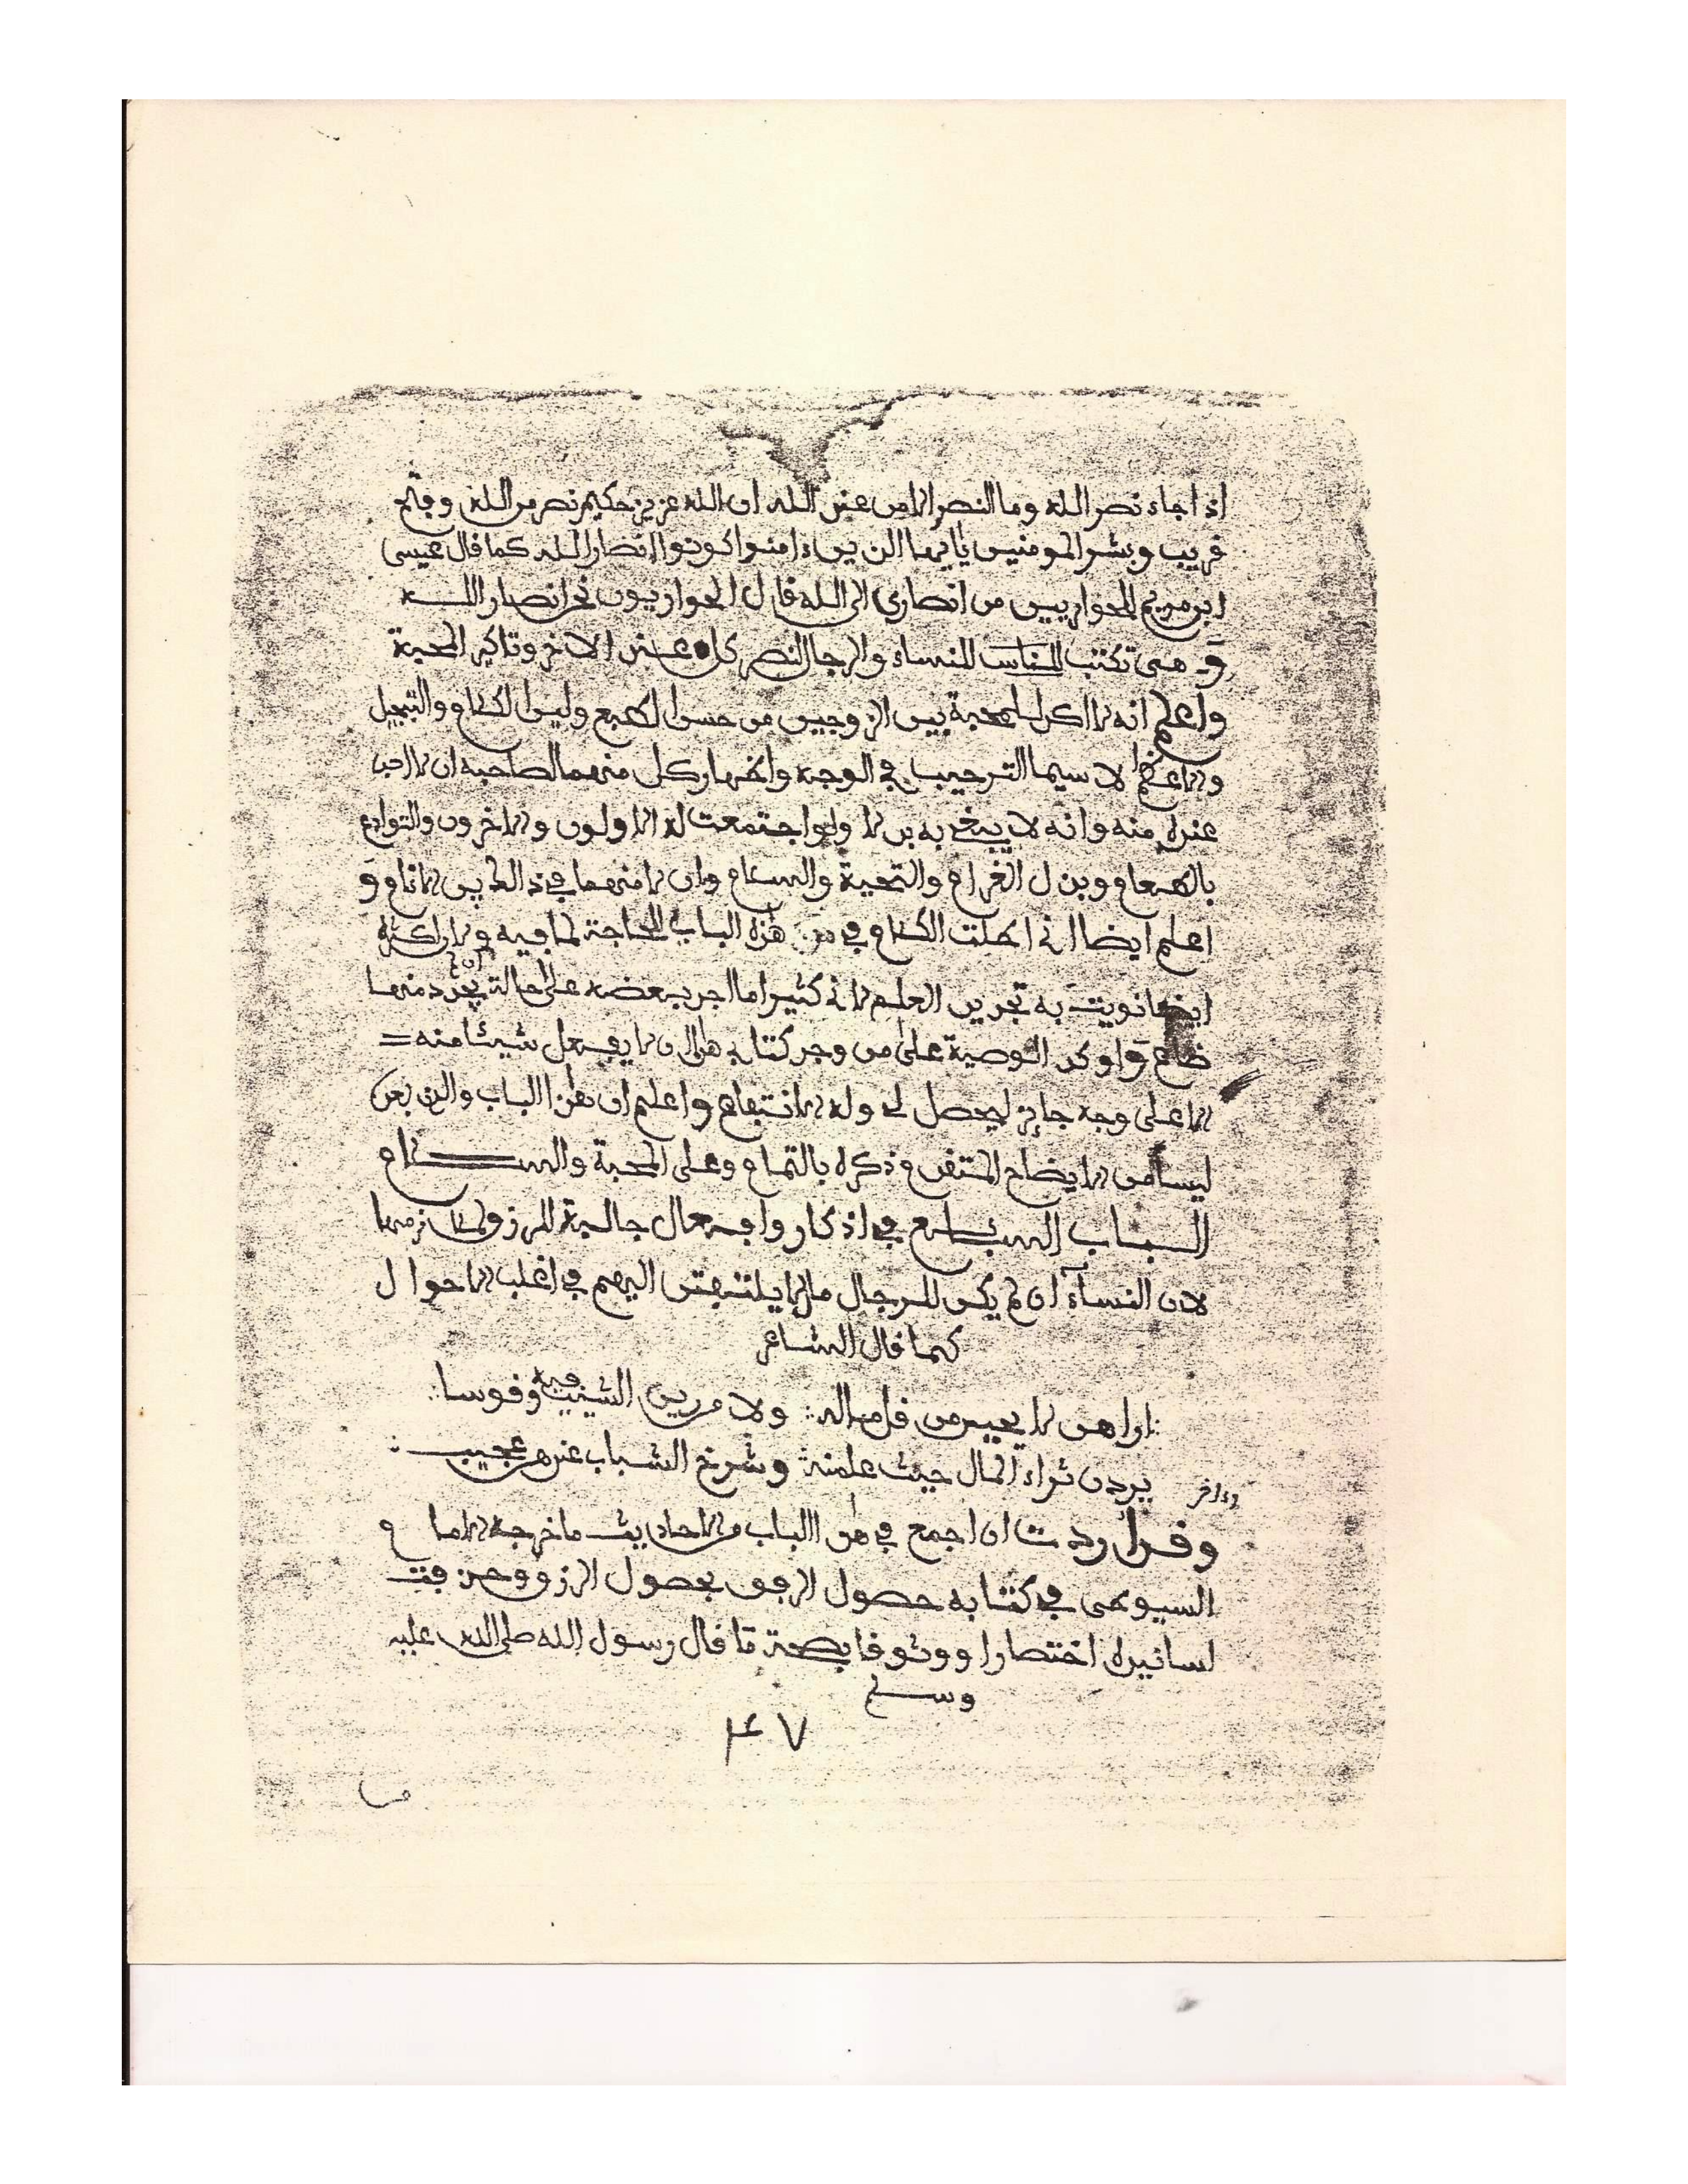 اذا جاء نصر الله وما النصر الا من عند الله ان الله عزيز حكيم نصر من الله وفتح
قريب وبشر المومنين يايها الذين ءامنوا كونوا انصار الله كما قال عيسى
ابن مريم للحواريين من انصاري الى الله قال الحواريون نحن انصار الله
و هى تكتب للناس للنساء والرجال لنصر كل عند الاخر وتاكيد المحبة
واعلم انه لا اكد لمحبة بين الزوجين من حسن الطبع ولين الكلام والتبجيل
والاعظام لا سيما الترحيب في الوجه واظهار كل منهما لصاحبه ان لا احب
عنده منه وانه لا يبغي به بدلا ولو اجتمعت له الاولون والاخرون والتوادع
بالطعام وبذل الغرام والتحية والسلام وان لا منهما في ذلك الاناء و
اعلم ايضا اني اطلت الكلام في هذه الباب للحاجة لما فيه ولان اكثره
ايضا نويت به تجديد العلم لاني كثيرا ما اجد بعضه على حالة ان تجرد منها
ضاع واوكد الوصية على من وجد كتابي هذا ان لا يفعل شيئا منه =
الا على وجه جايز ليحصل لي وله الانتفاع واعلم ان هذا الباب والذى بعده
ليسا من الايضاح المتقدم ذكره بالتمام وعلى المحبة والسلام
الباب السابع في اذكار وافعال جالبة للرزق
لان النساء ان لم يكن للرجال مال لا يلتفتن اليهم في اغلب الاحوال
كما قال الشاعر
اراهن لا يحببن من قل ماله ولا من رين الشيب فيه وقوسا
وءاخر يردن ثراء المال حيث علمنه وشرخ الشباب عندهن عجيب
وقد اردت ان اجمع في هذا الباب من الاحاديث ما خرجه الامام
السيوطى في كتابه حصول الرفق بحصول الرزق وحذفت
اسانيده اختصارا ووثوقا بصحة ما قال رسول الله صلى الله عليه
وسلم
٤٧